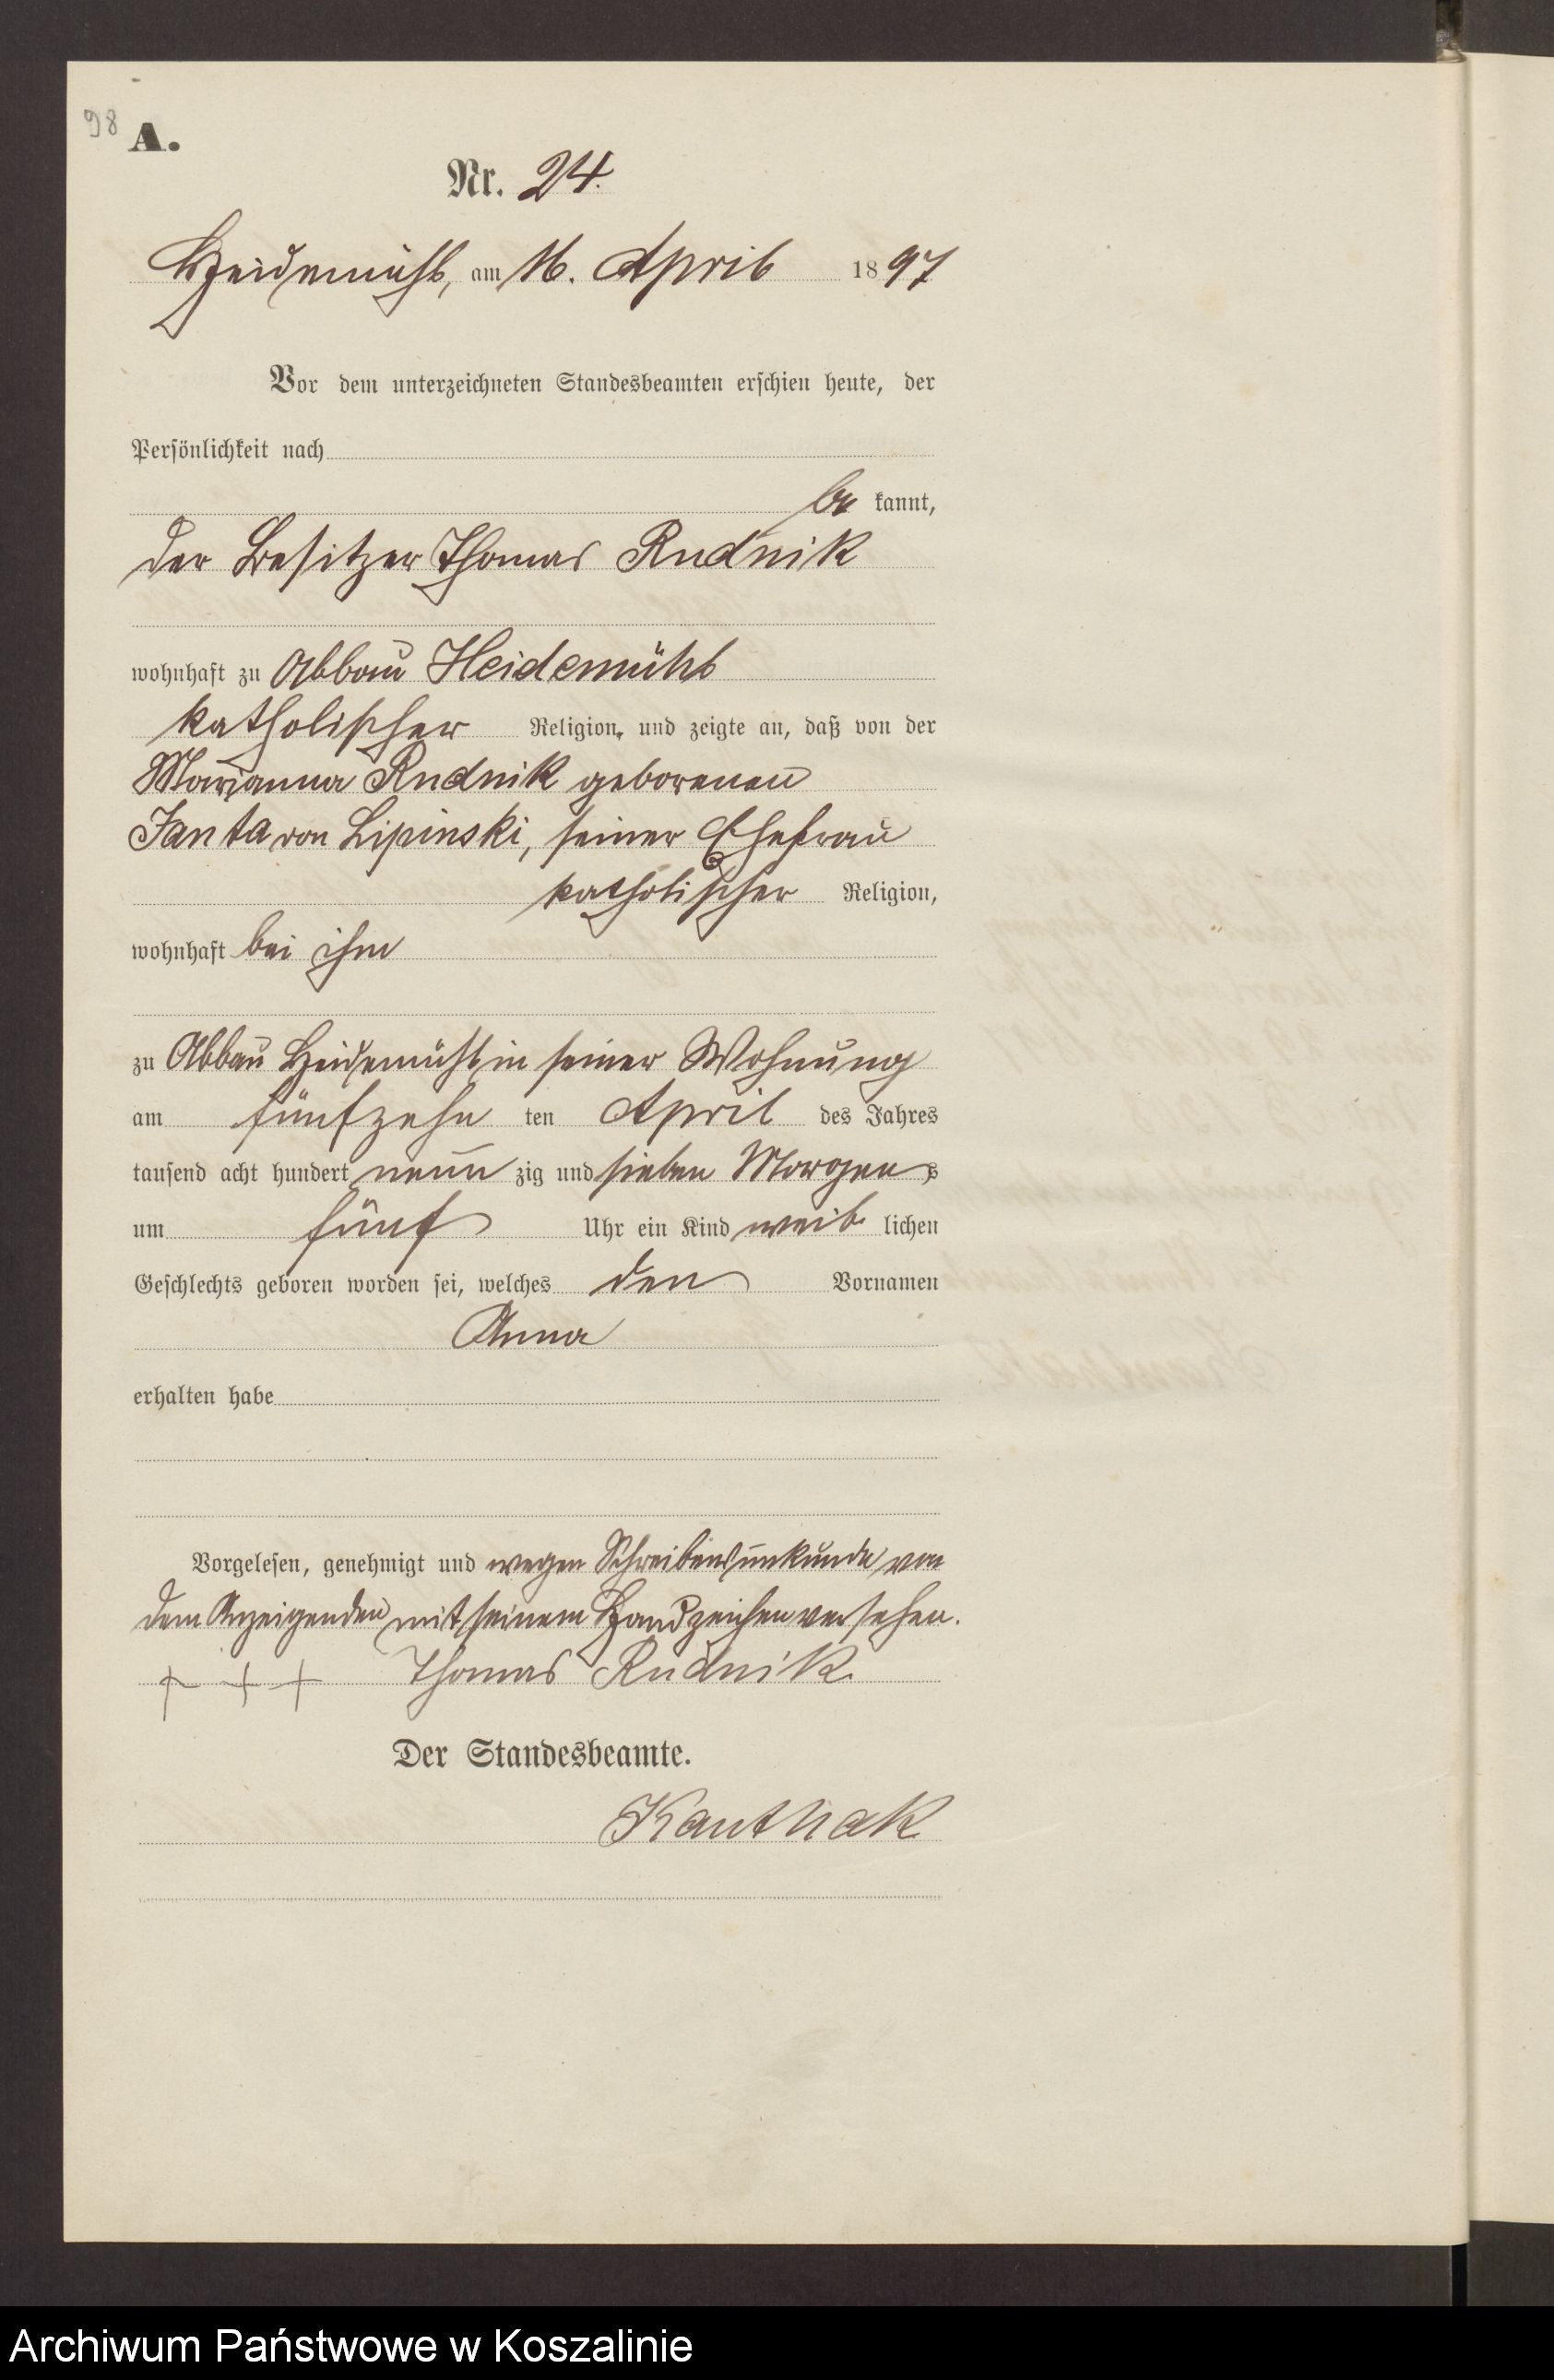 98 A.
Nr. 24.
Heidemühl, am 16. April 1897
Vor dem unterzeichneten Standesbeamten erschien heute, der
Persönlichkeit nach
be kannt,
der Besitzer Thomas Rudnik
wohnhaft zu Abbau Heidemühl
katholischer Religion, und zeigte an, daß von der
Marianna Rudnik geborenen
Janta von Lipinski, seiner Ehefrau
katholischer Religion,
wohnhaft bei ihm
zu Abbau Heidemühl in seiner Wohnung
am fünfzehn ten April des Jahres
tausend acht hundert neun zig und sieben Morgens
um fünf Uhr ein Kind weib lichen
Geschlechts geboren worden sei, welches den Vornamen
Anna
erhalten habe
Vorgelesen, genehmigt und wegen Schreibensunkunde von
dem Anzeigenden mit seinem Handzeichen versehen.
+ + + Thomas Rudnik
Der Standesbeamte.
Kanthak
Archiwum Państwowe w Koszalinie